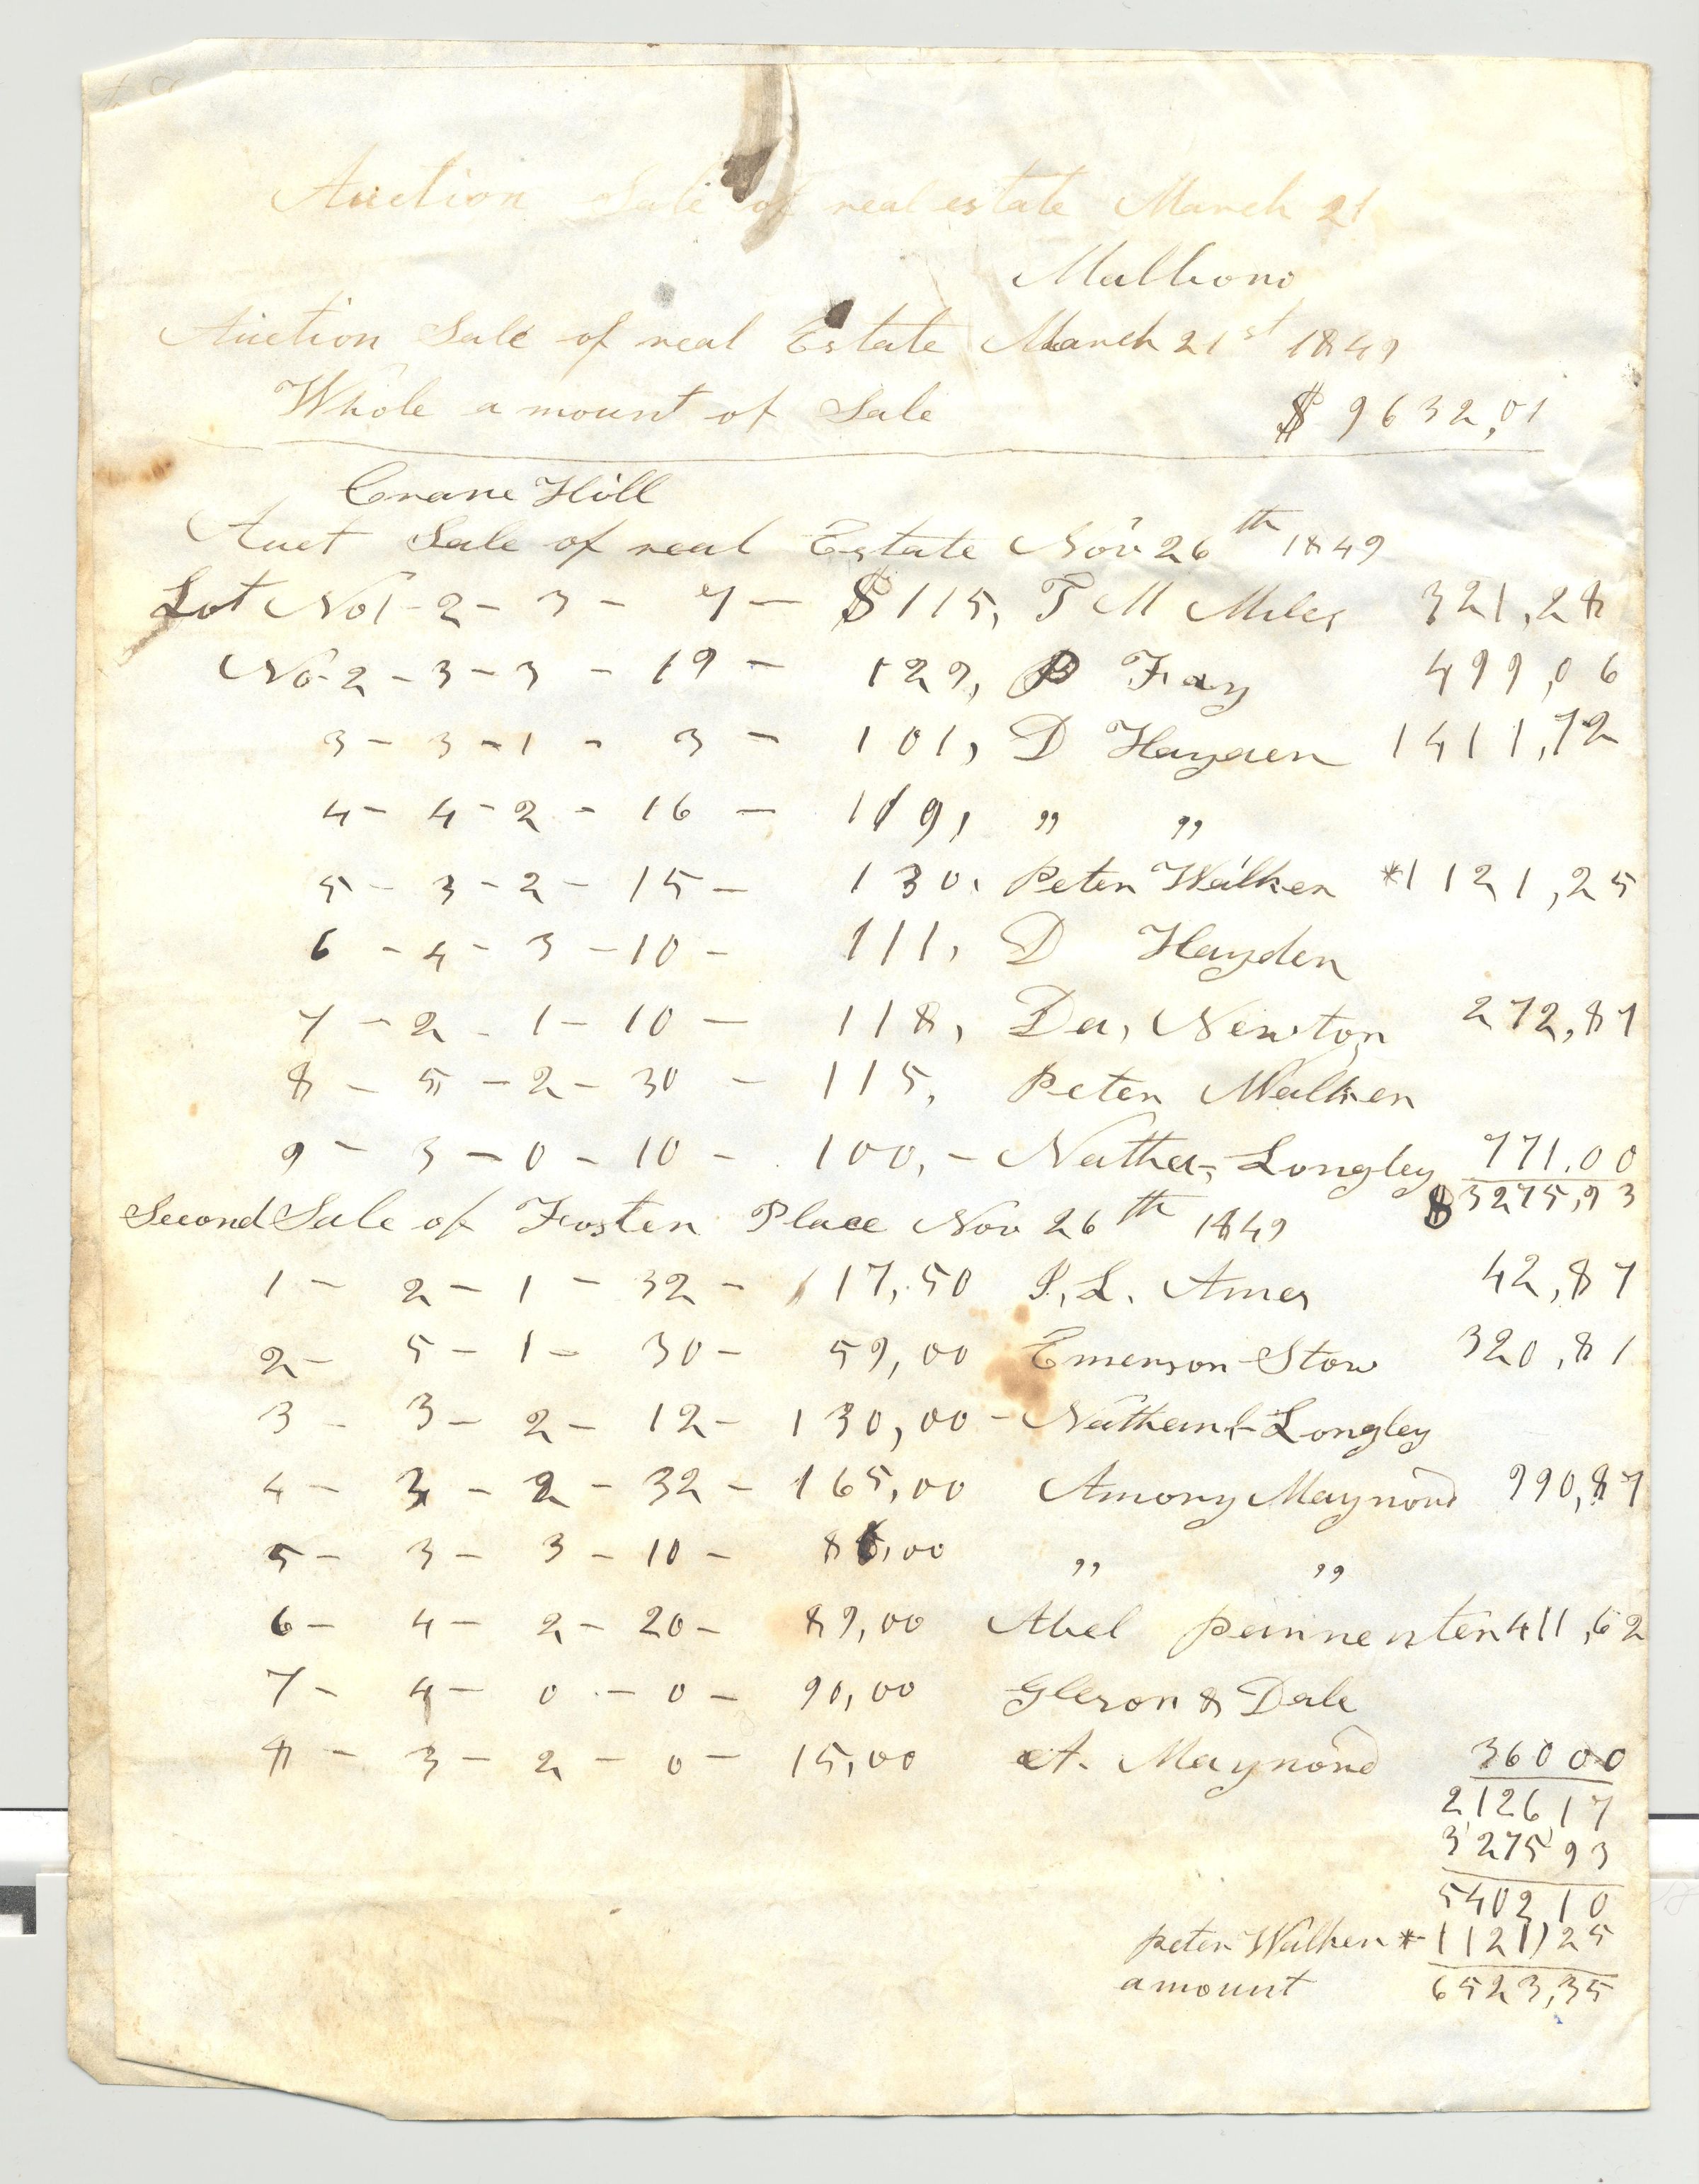 Auction Sale of real estate March 21
Malboro
Auction Sale of real Estate March 21st 1849
Whole amount of Sale $ 9632,01
Crane Hill
Auct Sale of real Estate Nov 26th 1849
Lot No 1 - 2 - 3 - 7 - $115, T M Miles 321,28
No 2 - 3 - 3 - 19 - 129, P Fay 499,06
3 - 3 - 1 - 3 - 101, D Hayden 1411,72
4 - 4 - 2 - 16 - 119, " "
5 - 3 - 2 - 15 - 130, Peter Walker *1121,25
6 - 4 - 3 - 10 - 111, D Hayden
7 - 2 - 1 - 10 - 118, Da, Newton 272,87
8 - 5 - 2 - 30 - 115, Peter Walker
9 - 3 - 0 - 10 - 100, - Natha- Longley 771.00
$3275,93
Second Sale of Foster Place Nov 26th 1849
1 - 2 - 1 - 32 - 17,50 S, L. Ames 42,87
2 - 5 - 1 - 30 - 59,00 Emerson Stow 320,81
3 - 3 - 2 - 12 - 130,00 - Nathanl Longley
4 - 3 - 2 - 32 - 165,00 Amory Maynord 990,87
5 - 3 - 3 - 10 - 86,00 " "
6 - 4 - 2 - 20 - 89,00 Abel 411,62
7 - 4 - 0 - 0 - 90,00 Gleson & Dale
8 - 3 - 2 - 0 - 15,00 A. Maynord 36000
212617
327593
540210
Peter Walker * 1121,25
amount 6523,35